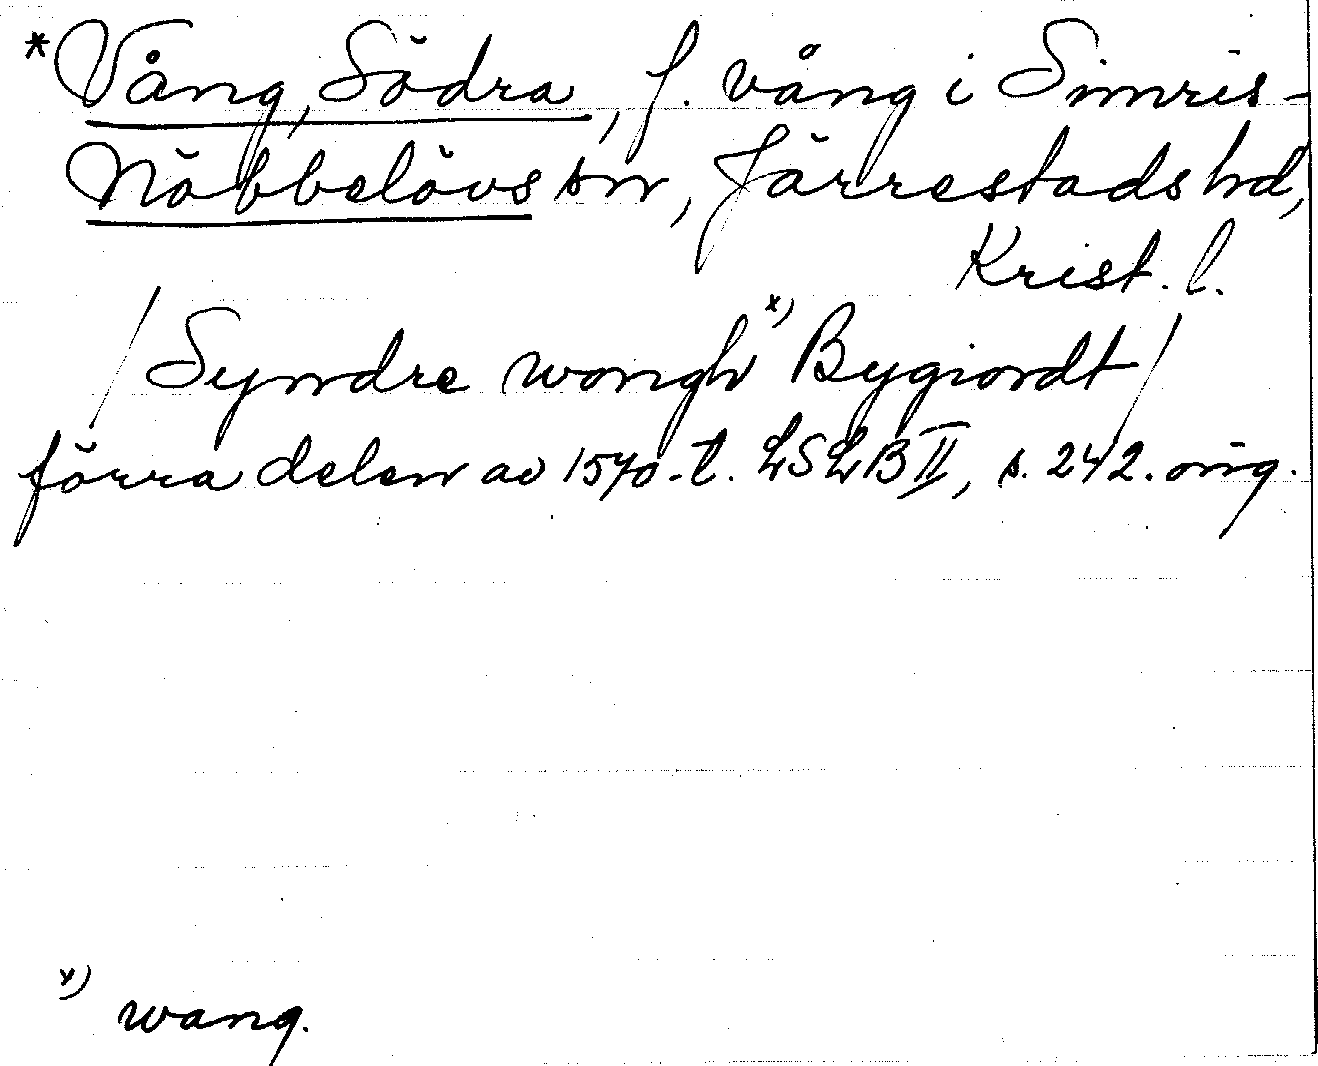 * Vång, Södra, f. vång i Simris-
Nöbbelövs sn, Järrestads hd,
Krist. l.
/Syndre wongh x) Bygiordt/
förra delen av 1570-t. LSLB II, s. 242. orig.
x) wang.